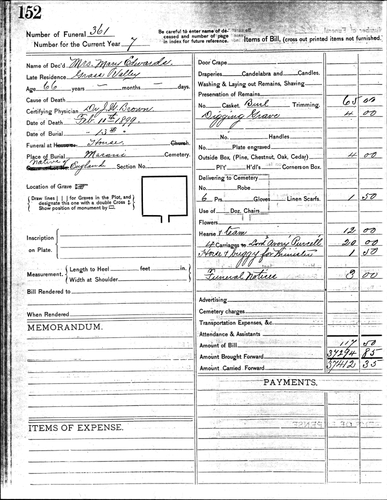 152
Number of Funeral 361
Number for the Current Year 7
Be careful to enter Name of de-
ceased and number of page
in index for future reference.
Items of Bill, (cross out printed items not furnished.
Name of Dec'd Mrs. Mary Edwards
Late Residence Grass Valley
Age 66 years — months days.
Cause of Death
Certifying Physician Dr. J. H. Brown
Date of Death Feb. 11th 1899.
Date of Burial " 13th "
Funeral at House House Church
Place of Burial Masonic Cemetery.
Native of England Section No.
Location of Grave
Draw lines for Graves in the Plot, and
designate this one with a double Cross
Show position of monument by
Inscription
on Plate.
Measurement, Length to Heel feet in.
Width at Shoulder
Bill Rendered to
When Rendered
MEMORANDUM.
ITEMS OF EXPENSE.
Door Crape
Draperies Candelabra and Candles.
Washing & Laying out Remains, Shaving
Preservation of Remains
No. Casket, Burl Trimming. 65 00
Digging Grave 4 00
No. Handles
Plate engraved
Outside Box, (Pine, Chestnut, Oak, Cedar) 4 00
PlY H'd's Corners on Box.
Delivering to Cemetery
No. Robe
6 Prs. Gloves Linen Scarfs. 1 50
Use of Doz. Chairs
Flowers
Hearse & team 12 00
Carriages to 20 00
Horse & buggy for Minister 1 50
Funeral Notices 8 00
Advertising
Cemetery charges
Transportation Expenses, &c
Attendance & Assistants
Amount of Bill 117 50
Amount Brought Forward 37294 85
Amount Carried Forward 37412 35
PAYMENTS.